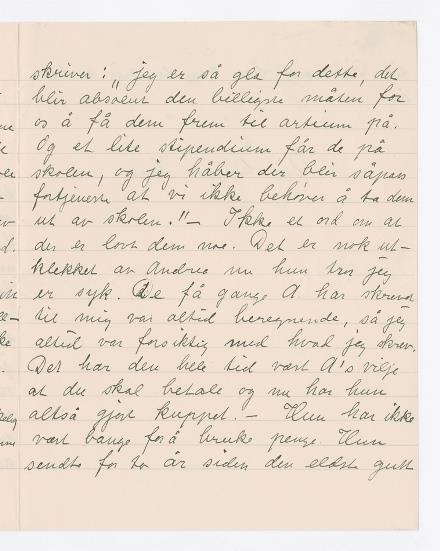 skriver: „jeg er så gla for dette, det
blir absolut den billigste måten for
os å få dem frem til artium på.
Og et lite stipendium får de på
skolen, og jeg håber der blir såpass
fortjeneste at vi ikke behøver å ta dem
ut av skolen." – Ikke et ord om at
der er lovt dem noe. Det er nok ut-
klekket av Andrea nu hun tror jeg
er syk. De få gange A. har skrevet
til mig var altid beregnende, så jeg
altid var forsiktig med hvad jeg skrev.
Det har den hele tid vært A's vilje
at du skal betale og nu har hun
altså gjort kuppet. – Hun har ikke
vært bange for å bruke penge. Hun
sendte for to år siden den eldste gutt